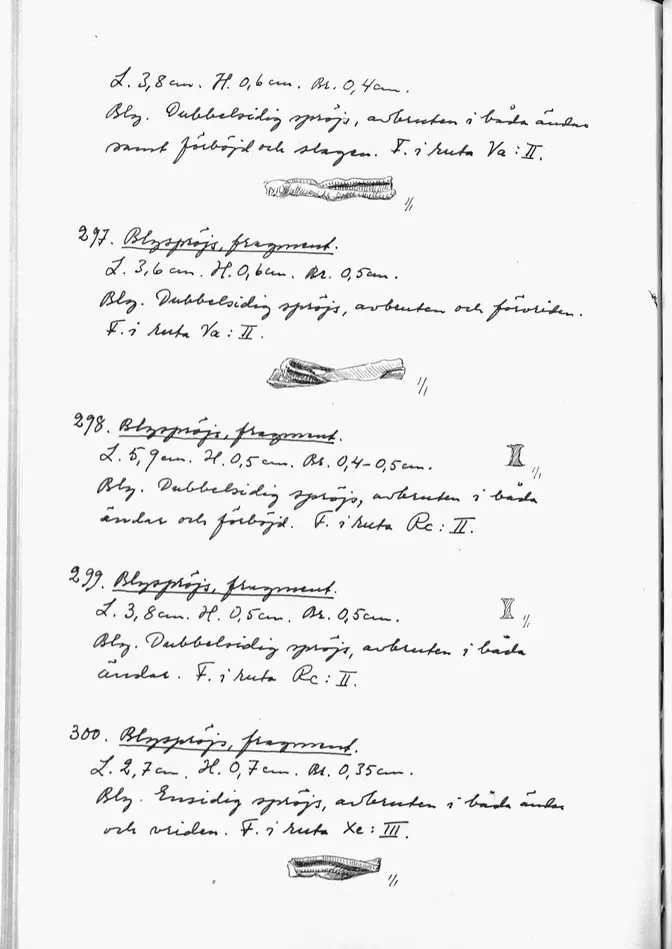 L. 3,8 cm. H. 0,6 cm. Br. 0,4 cm.
Bly. Dubbelsidig spröjs, avbruten i båda ändar
samt förböjd och slagen. F. i ruta Va : II.
1/1
297. Blyspröjs, fragment.
L. 3,6 cm. H. 0,6 cm. Br. 0,5 cm.
Bly. Dubbelsidig spröjs, avbruten och förvriden.
F. i ruta Va : II.
1/1
298. Blyspröjs, fragment.
L. 5,9 cm. H. 0,5 cm. Br. 0,4-0,5 cm.
1/1
Bly. Dubbelsidig spröjs, avbruten i båda
ändar och förböjd. F. i ruta Rc : II.
299. Blyspröjs, fragment.
L. 3,8 cm. H. 0,5 cm. Br. 0,5 cm.
1/1
Bly. Dubbelsidig spröjs, avbruten i båda
ändar. F. i ruta Rc : II.
300. Blyspröjs, fragment.
L. 2,7 cm. H. 0,7 cm. Br. 0,35 cm.
Bly. Ensidig spröjs, avbruten i båda ändar
och vriden. F. i ruta Xc : III.
1/1